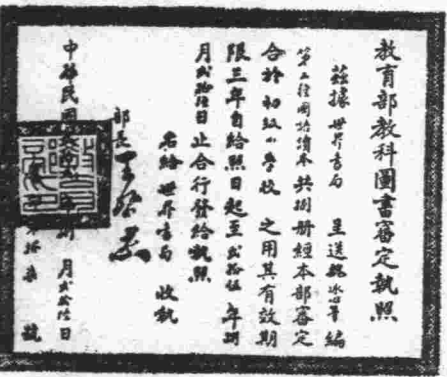 教育部教科圖書審定執照
茲據世界書局呈送魏冰心等編
第二種國語讀本共捌册經本部審定
合於初級小學校之用其有效期
限三年自給照日起至貳拾伍年捌
月貳拾陸日止合行發給執照
右給世界書局收執
部長王世杰
中華民國年捌月貳拾陸日
號